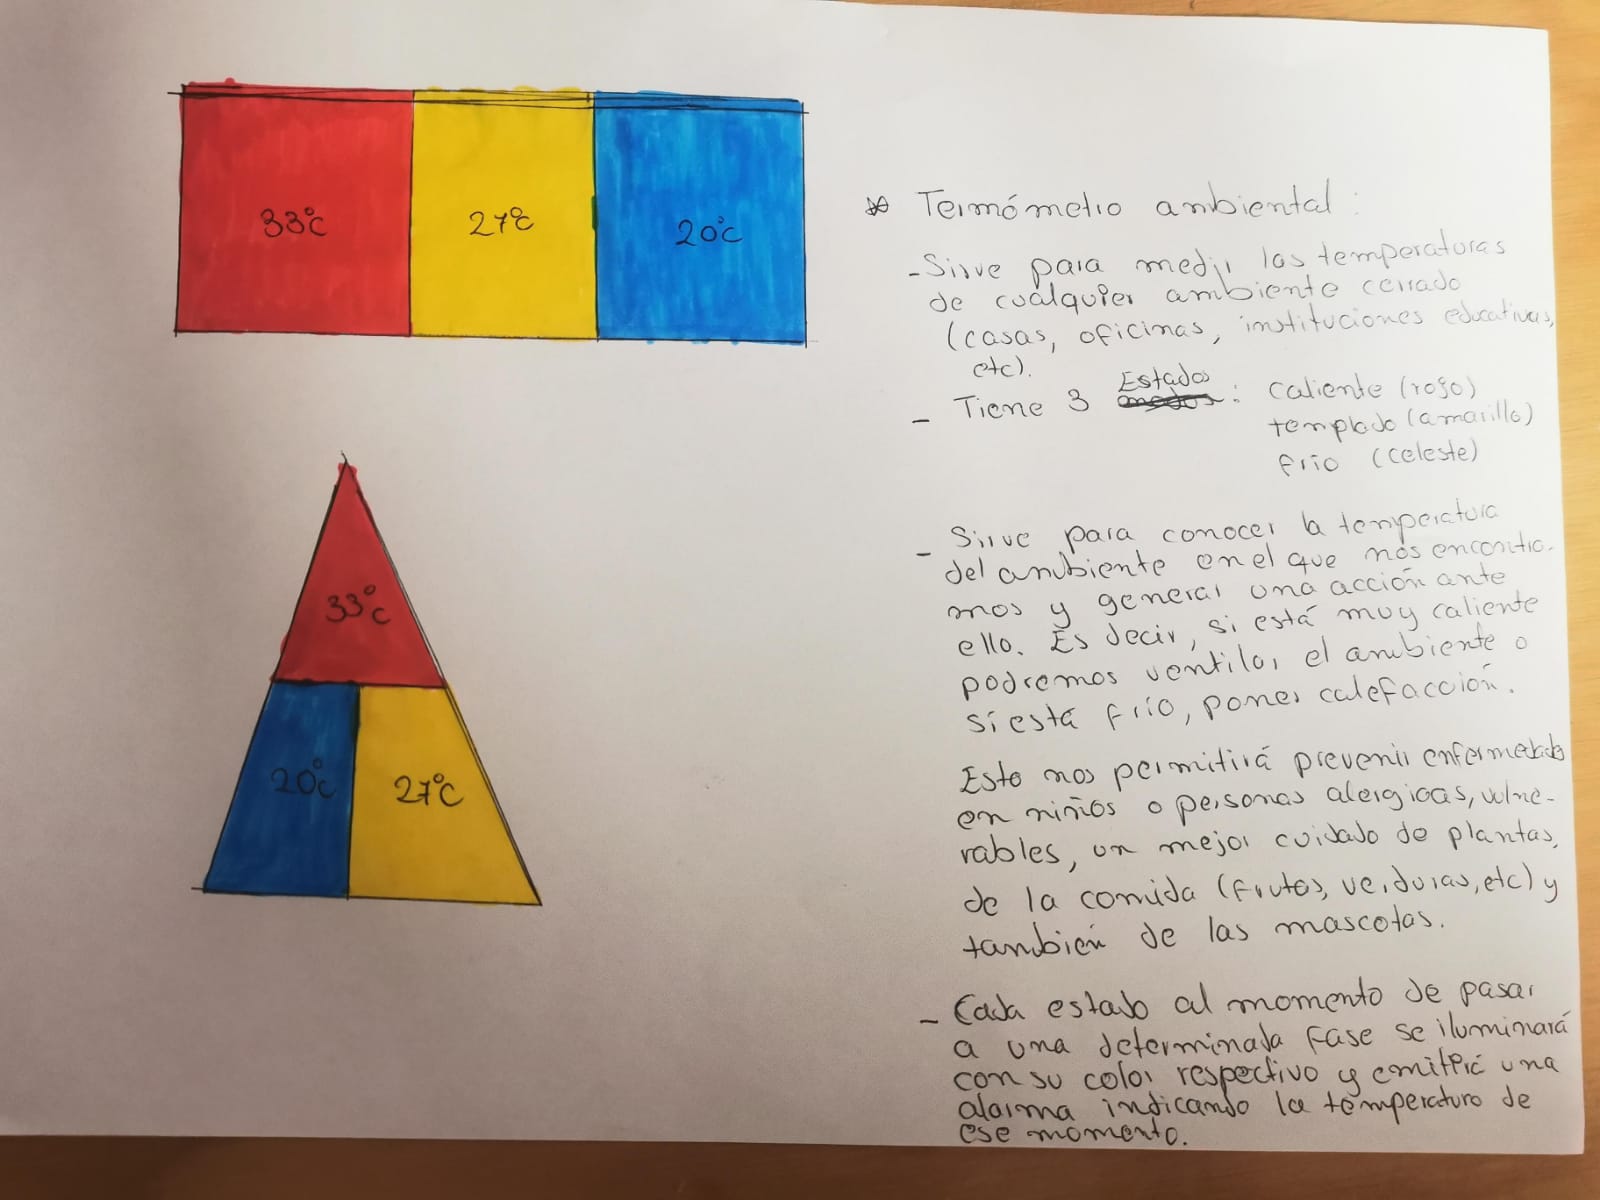 33°C 27°C 20°C
33°C
20°C 27°C
* Termómetro ambiental:
- Sirve para medir las temperaturas
de cualquier ambiente cerrado
(casas, oficinas, instituciones educativas,
etc).
Estados
- Tiene 3 : Caliente (rojo)
templado (amarillo)
frío (celeste)
- Sirve para conocer la temperatura
del ambiente en el que nos encontra-
mos y generar una acción ante
ello. Es decir, si está muy caliente
podremos ventilar el ambiente o
si está frío, poner calefacción.
Esto nos permitirá prevenir enfermedades
en niños o personas alergicas, vulne-
rables, un mejor cuidado de plantas,
de la comida (frutas, verduras, etc) y
también de las mascotas.
- Cada estado al momento de pasar
a una determinada fase se iluminará
con su color respectivo y emitirá una
alarma indicando la temperatura de
ese momento.